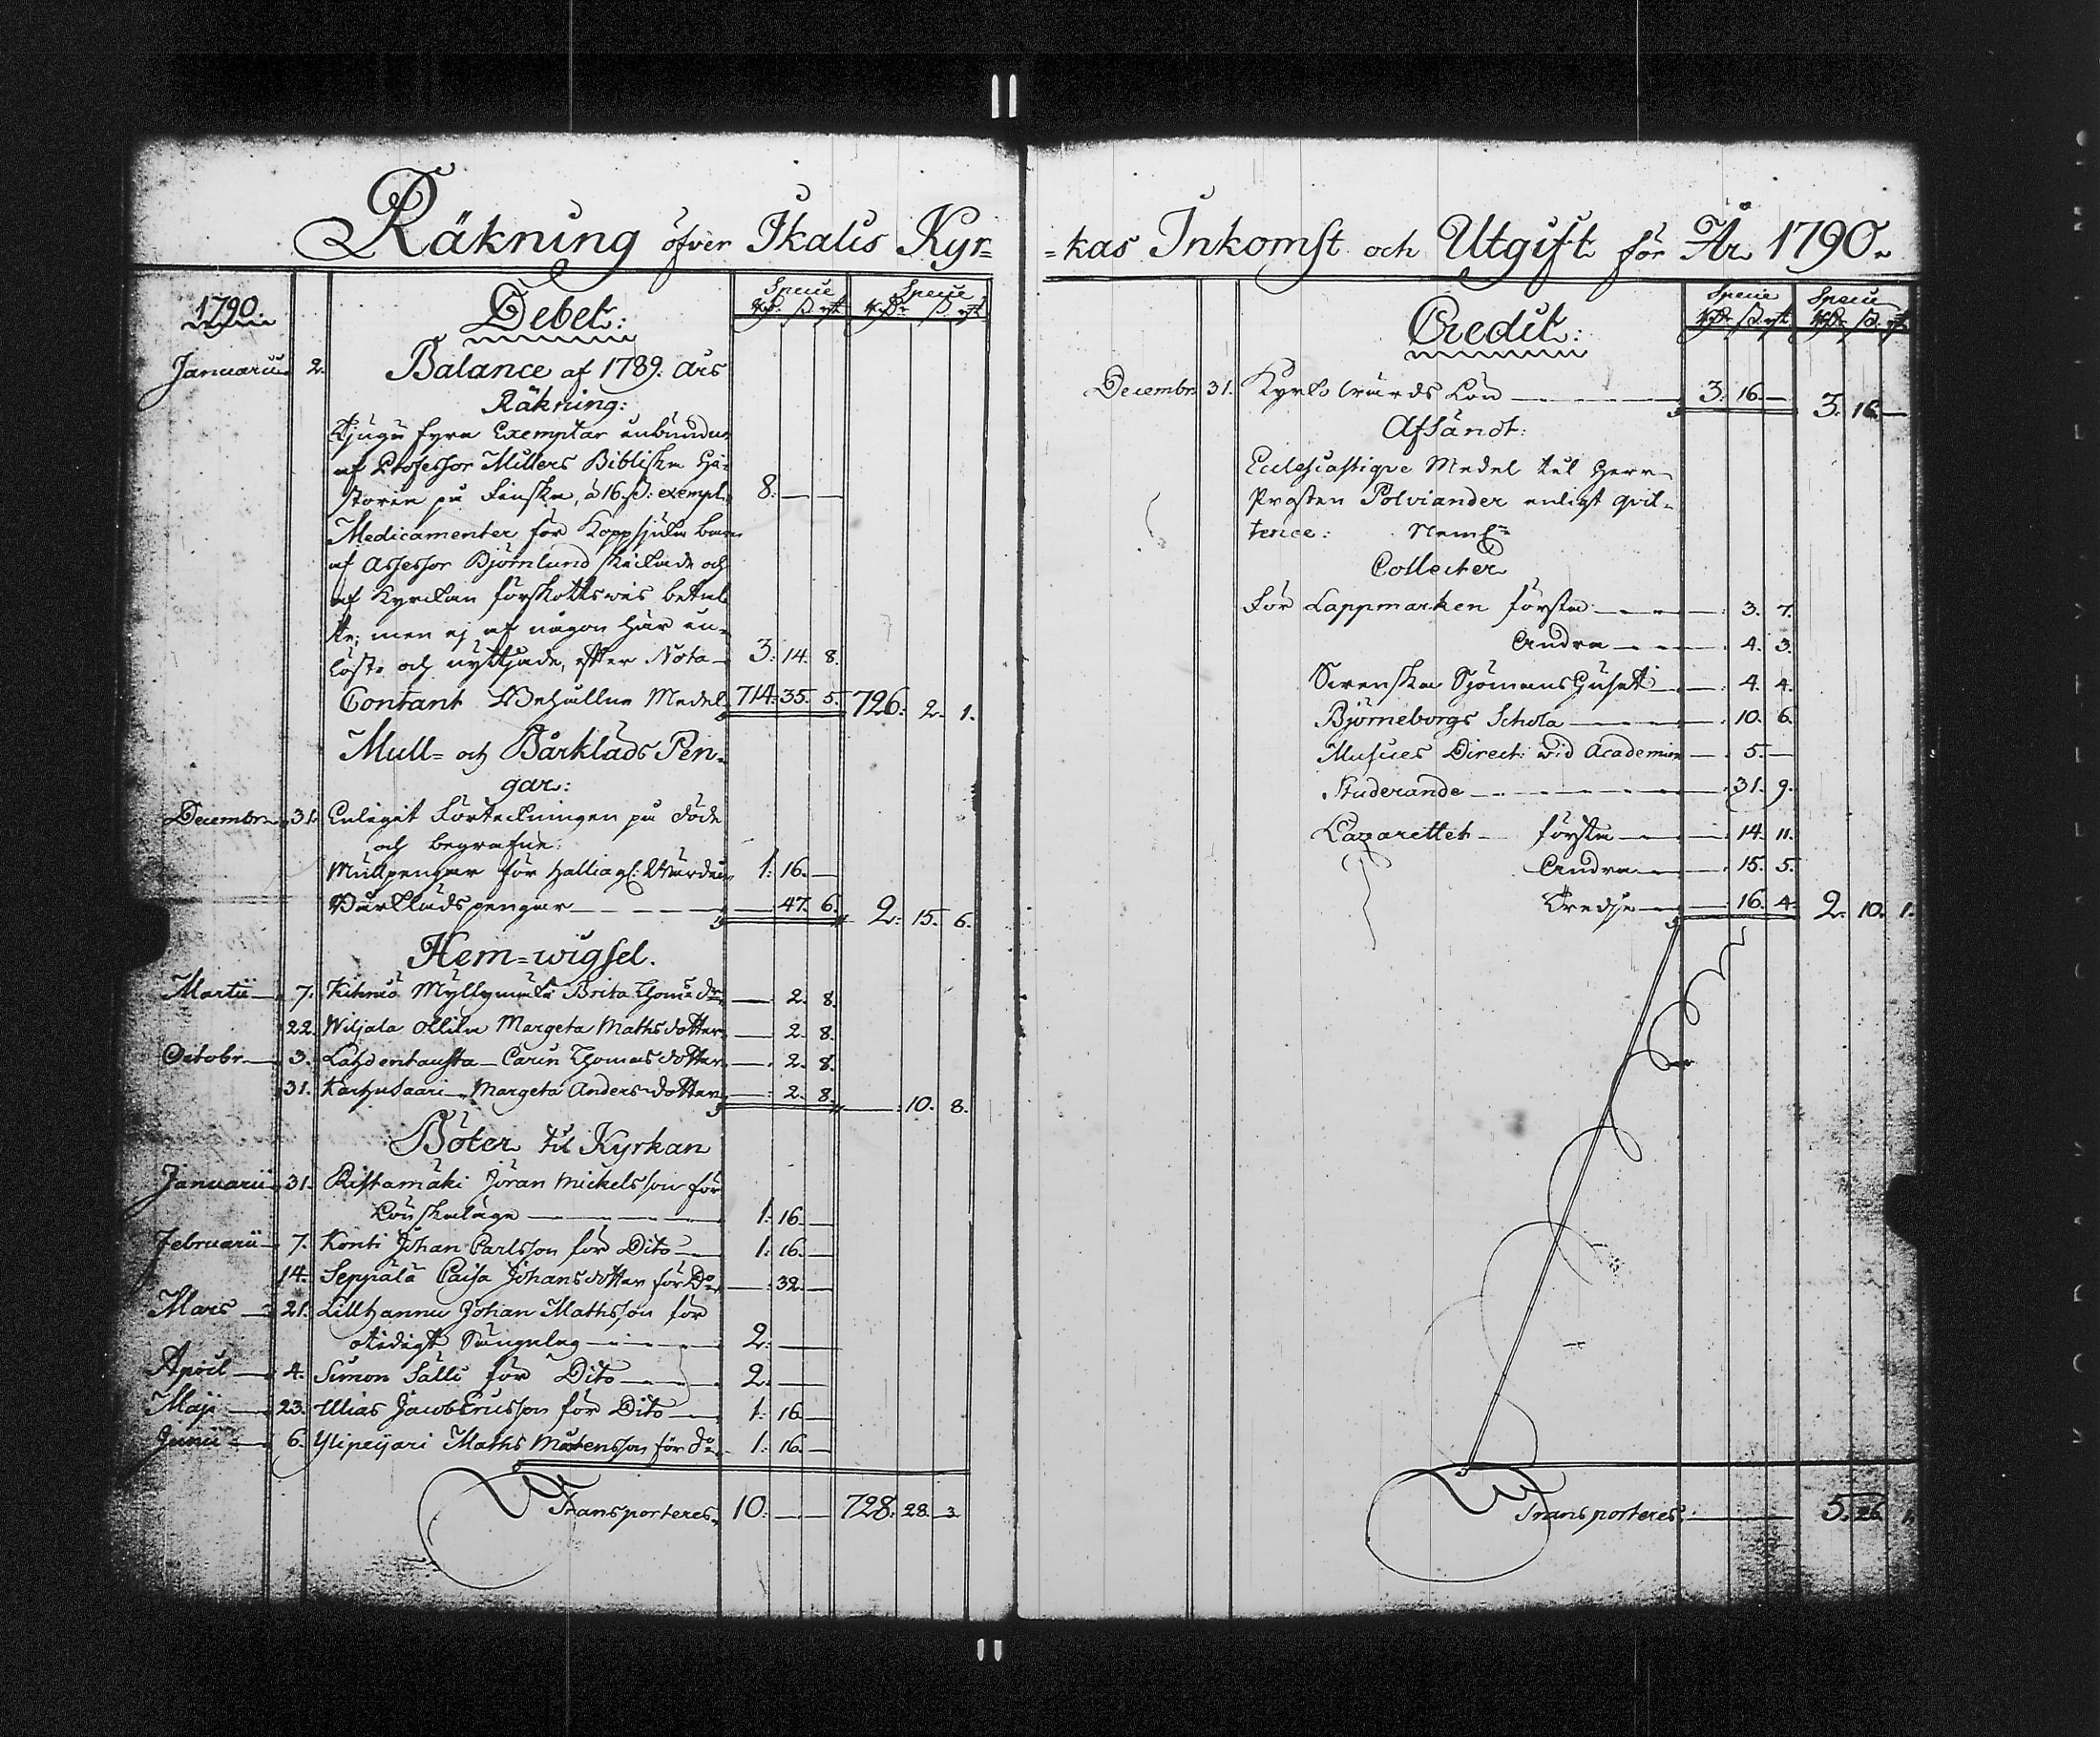 Räkning öfver Ikalis Kyr=
1790.
Debet:
Specie Specie
Rd. ß. rst. Rdr ß. rst.
Januarii 2. Balance af 1789. års
Räkning:
Tjugu fyra Exemplar inbundne
af Professor Millers Bibliska Hi-
storia på Finska, à 16. ß: exempl. 8. — —
Medicamenter för Koppsjuka barn
af Assessor Björnlund skickade och
af Kyrckan förskottsvis betal
te; men ej af någon här in-
löste och nyttjade, efter Nota — 3. 14. 8.
Contant Behållne Medel 714. 35. 5. 726. 2. 1.
Mull= och Bårklads Pen-
gar:
Decembr. 31. Enligit Förteckningen på döde
och begrafne:
Mullpengar för 1. 16. —
Bårklädspengar — 47. 6. 2. 15. 6.
Hem=wigsel.
Martii 7. Kihniö Myllymäki Brita Thoms dr — 2. 8.
22. Wiljala Ollila Margeta Mathsdotter — 2. 8.
Octobr. 3. Lahdentausta Carin Thomasdotter — 2. 8.
31. Karhusaari Margeta Andersdotter — 2. 8. — 10. 8.
Böter til Kyrkan
Januarii 31. Ristamäki Jöran Mickelsson för
Lönskaläge — 1. 16. —
Februarii 7. Konti Johan Carlsson för Dito — 1. 16. —
14. Seppälä Caisa Johansdotter för Do — 32. —
Mars 21. Lillhannu Johan Mathsson för
otidigt Sängelag — 2. —
April 4. Simon Sälli för Dito — 2. —
Maji 23. Jacob Ericsson för Dito — 1. 16. —
Junii 6. Ylipeijari Maths Mårtensson för do 1. 16. —
Transporteres. 10. — — 728. 28. 3.
=kas Inkomst och Utgift för År 1790.
Credit:
Specie Specie
Rdr ß. rst. Rdr ß. rst.
Decembr. 31. Kyrko Wärds Lön — 3. 16. — 3. 16. —
Afsändt:
Ecclesiastique Medel till Herr
Prosten Polviander enligt qvit-
tence: Neml:
Collecter
För Lappmarken första — 3. 7.
Andra — 4. 3.
Svenska Sjömans Huset — 4. 4.
Björneborgs Schola — 10. 6.
Musices Direct: vid Academien — 5. —
Studerande — 31. 9.
Lazarettet första — 14. 11.
Andra — 15. 5.
Tredje — 16. 4. 2. 10. 1.
Transporteres: — 5. 26. 1.